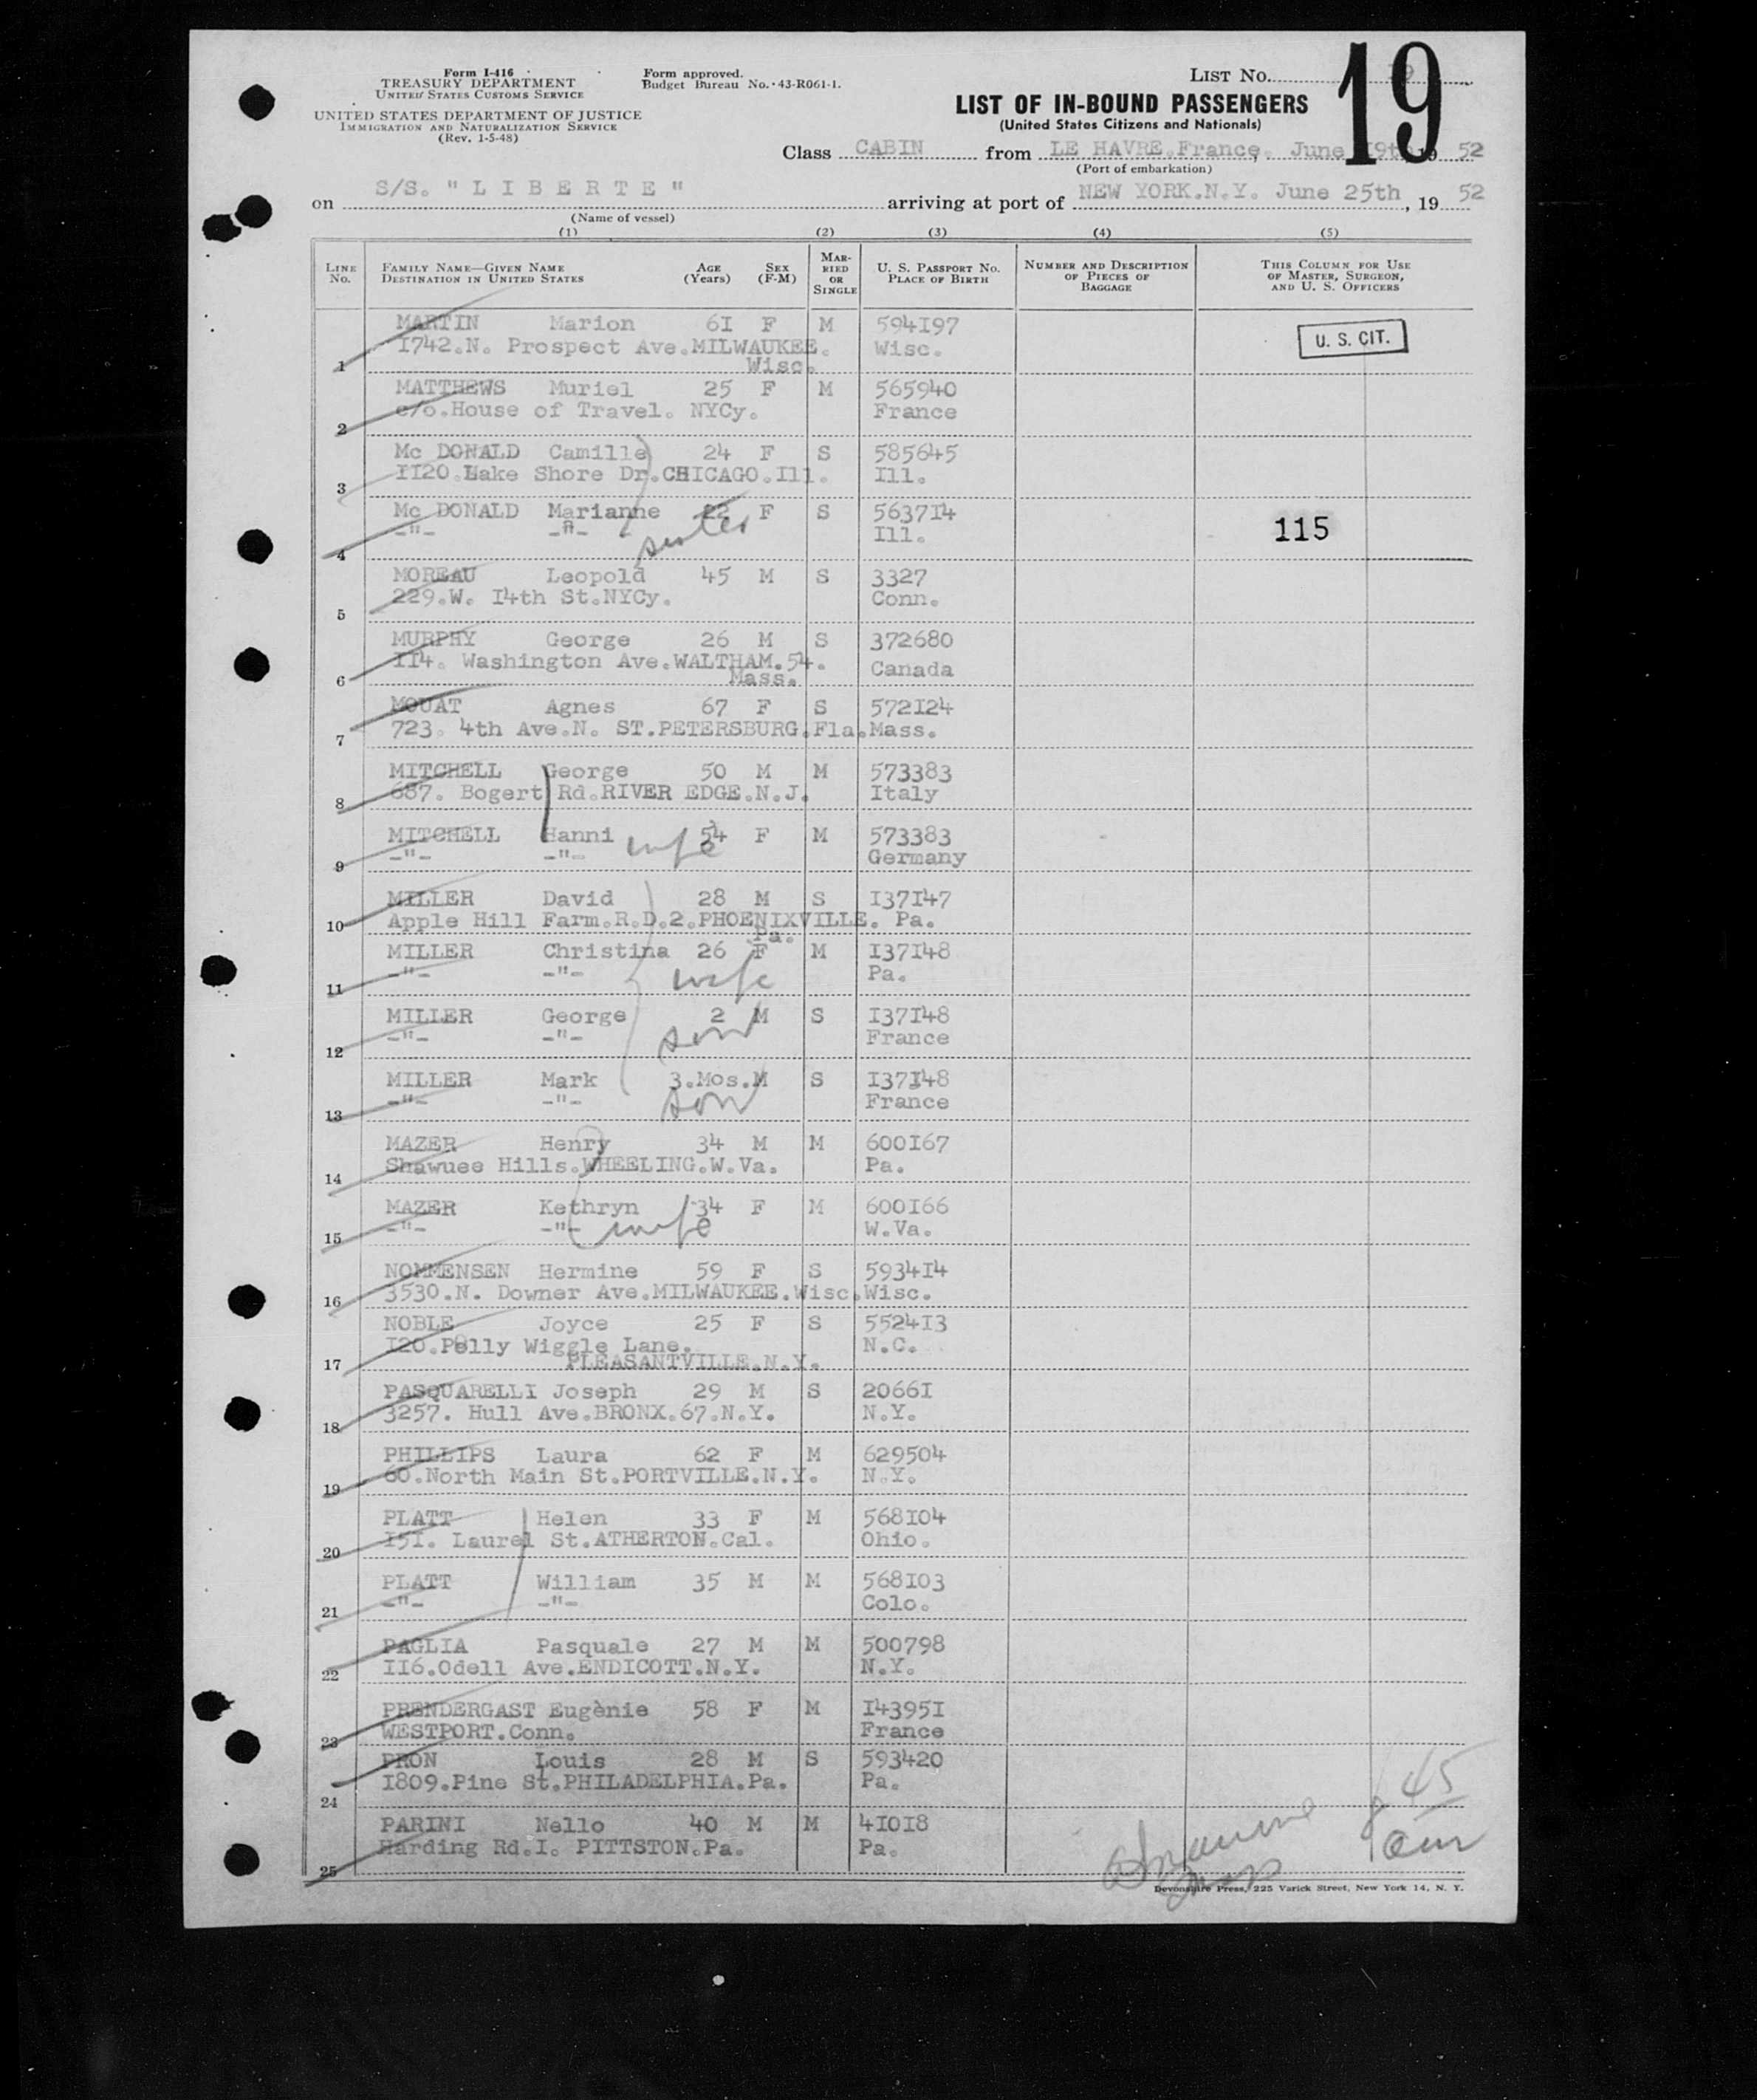 Form I-416
TREASURY DEPARTMENT
UNITED STATES CUSTOMS SERVICE
UNITED STATES DEPARTMENT OF JUSTICE
IMMIGRATION AND NATURALIZATION SERVICE
(Rev. 1-5-48)
Form approved.
Budget Bureau No. 43-R061-1.
LIST NO.
19
LIST OF IN-BOUND PASSENGERS
(United States Citizens and Nationals)
Class CABIN from LE HAVRE.France, June 19th 19 52
(Port of embarkation)
on S/S. "LIBERTE" arriving at port of NEW YORK.N.Y. June 25th, 19 52
(Name of vessel)
(1) (2) (3) (4) (5)
LINE NO. FAMILY NAME—GIVEN NAME DESTINATION IN UNITED STATES AGE (Years) SEX (F-M) MARRIED OR SINGLE U. S. PASSPORT NO. PLACE OF BIRTH NUMBER AND DESCRIPTION OF PIECES OF BAGGAGE THIS COLUMN FOR USE OF MASTER, SURGEON, AND U. S. OFFICERS
MARTIN Marion 6I F M 594I97
I742.N. Prospect Ave.MILWAUKEE. Wisc. U. S. CIT.
1 Wisc.
MATTHEWS Muriel 25 F M 565940
c/o.House of Travel. NYCy. France
2
Mc DONALD Camille 24 F S 585645
II20.Lake Shore Dr.CHICAGO.Ill. Ill.
3
Mc DONALD Marianne 22 F S 5637I4
-"- -"- sister Ill. 115
4
MOREAU Leopold 45 M S 3327
229.W. I4th St.NYCy. Conn.
5
MURPHY George 26 M S 372680
II4. Washington Ave.WALTHAM.54. Canada
6 Mass.
MOUAT Agnes 67 F S 572I24
723. 4th Ave.N. ST.PETERSBURG.Fla.Mass.
7
MITCHELL George 50 M M 573383
687. Bogert Rd.RIVER EDGE.N.J. Italy
8
MITCHELL Hanni wife 54 F M 573383
-"- -"- Germany
9
MILLER David 28 M S I37I47
10 Apple Hill Farm.R.D.2.PHOENIXVILLE. Pa.
Pa.
MILLER Christina 26 F M I37I48
-"- -"- wife Pa.
11
MILLER George 2 M S I37I48
-"- -"- son France
12
MILLER Mark 3.Mos.M S I37I48
-"- -"- son France
13
MAZER Henry 34 M M 600I67
Shawuee Hills.WHEELING.W.Va. Pa.
14
MAZER Kethryn 34 F M 600I66
-"- -"- wife W.Va.
15
NOMMENSEN Hermine 59 F S 5934I4
3530.N. Downer Ave.MILWAUKEE.Wisc.Wisc.
16
NOBLE Joyce 25 F S 5524I3
I20.Polly Wiggle Lane. N.C.
17 PLEASANTVILLE.N.Y.
PASQUARELLI Joseph 29 M S 2066I
3257. Hull Ave.BRONX.67.N.Y. N.Y.
18
PHILLIPS Laura 62 F M 629504
60.North Main St.PORTVILLE.N.Y. N.Y.
19
PLATT Helen 33 F M 568I04
I5I. Laurel St.ATHERTON.Cal. Ohio.
20
PLATT William 35 M M 568I03
-"- -"- Colo.
21
PAGLIA Pasquale 27 M M 500798
II6.Odell Ave.ENDICOTT.N.Y. N.Y.
22
PRENDERGAST Eugènie 58 F M I4395I
WESTPORT.Conn. France
23
PRON Louis 28 M S 593420
I809.Pine St.PHILADELPHIA.Pa. Pa.
24
PARINI Nello 40 M M 4I0I8
Harding Rd.I. PITTSTON.Pa. Pa.
25
45
Devonshire Press, 225 Varick Street, New York 14, N. Y.